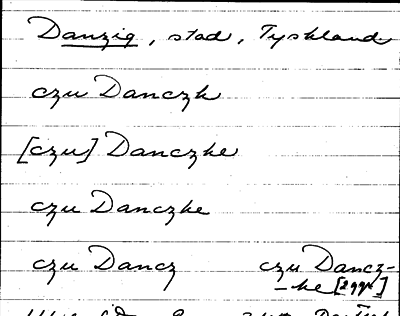 Danzig, stad, Tyskland
czu Danczk
[czu] Danczke
czu Danczke
czu Dancz czu Dancz-
-ke [2 ggr]